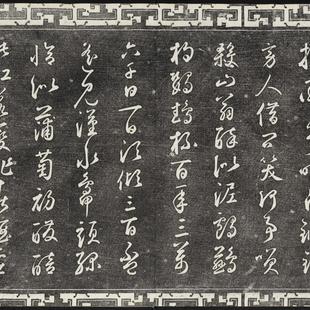 旁人借問笑何事笑
殺山翁醉似泥鸕鶿
杓鸚鵡杯百年三萬
六千日一日須傾三百杯
遙看漢水鴨頭綠
恰似蒲萄初醱醅
此江若變作春酒壘